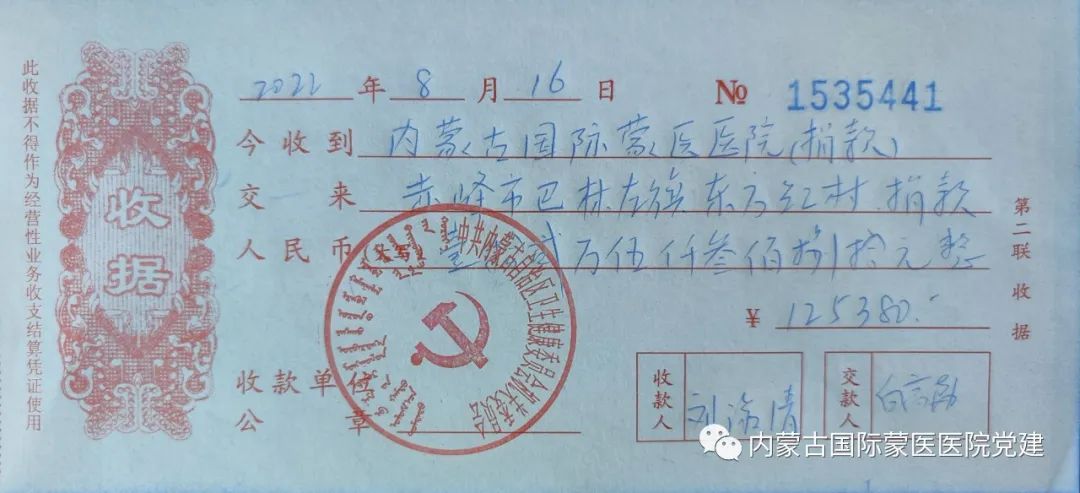 此收据不得作为经营性业务收支结算凭证使用
收据
2022年8月16日 № 1535441
今收到 内蒙古国际蒙医医院(捐款)
交来 赤峰市巴林左旗东石红村捐款
人民币(大写) 壹拾贰万伍仟叁佰捌拾元整
¥ 125380.-
收款单位
公章
中共内蒙古自治区卫生健康委员会机关委员会
收款人 刘海清
交款人
第二联 收据
内蒙古国际蒙医医院党建